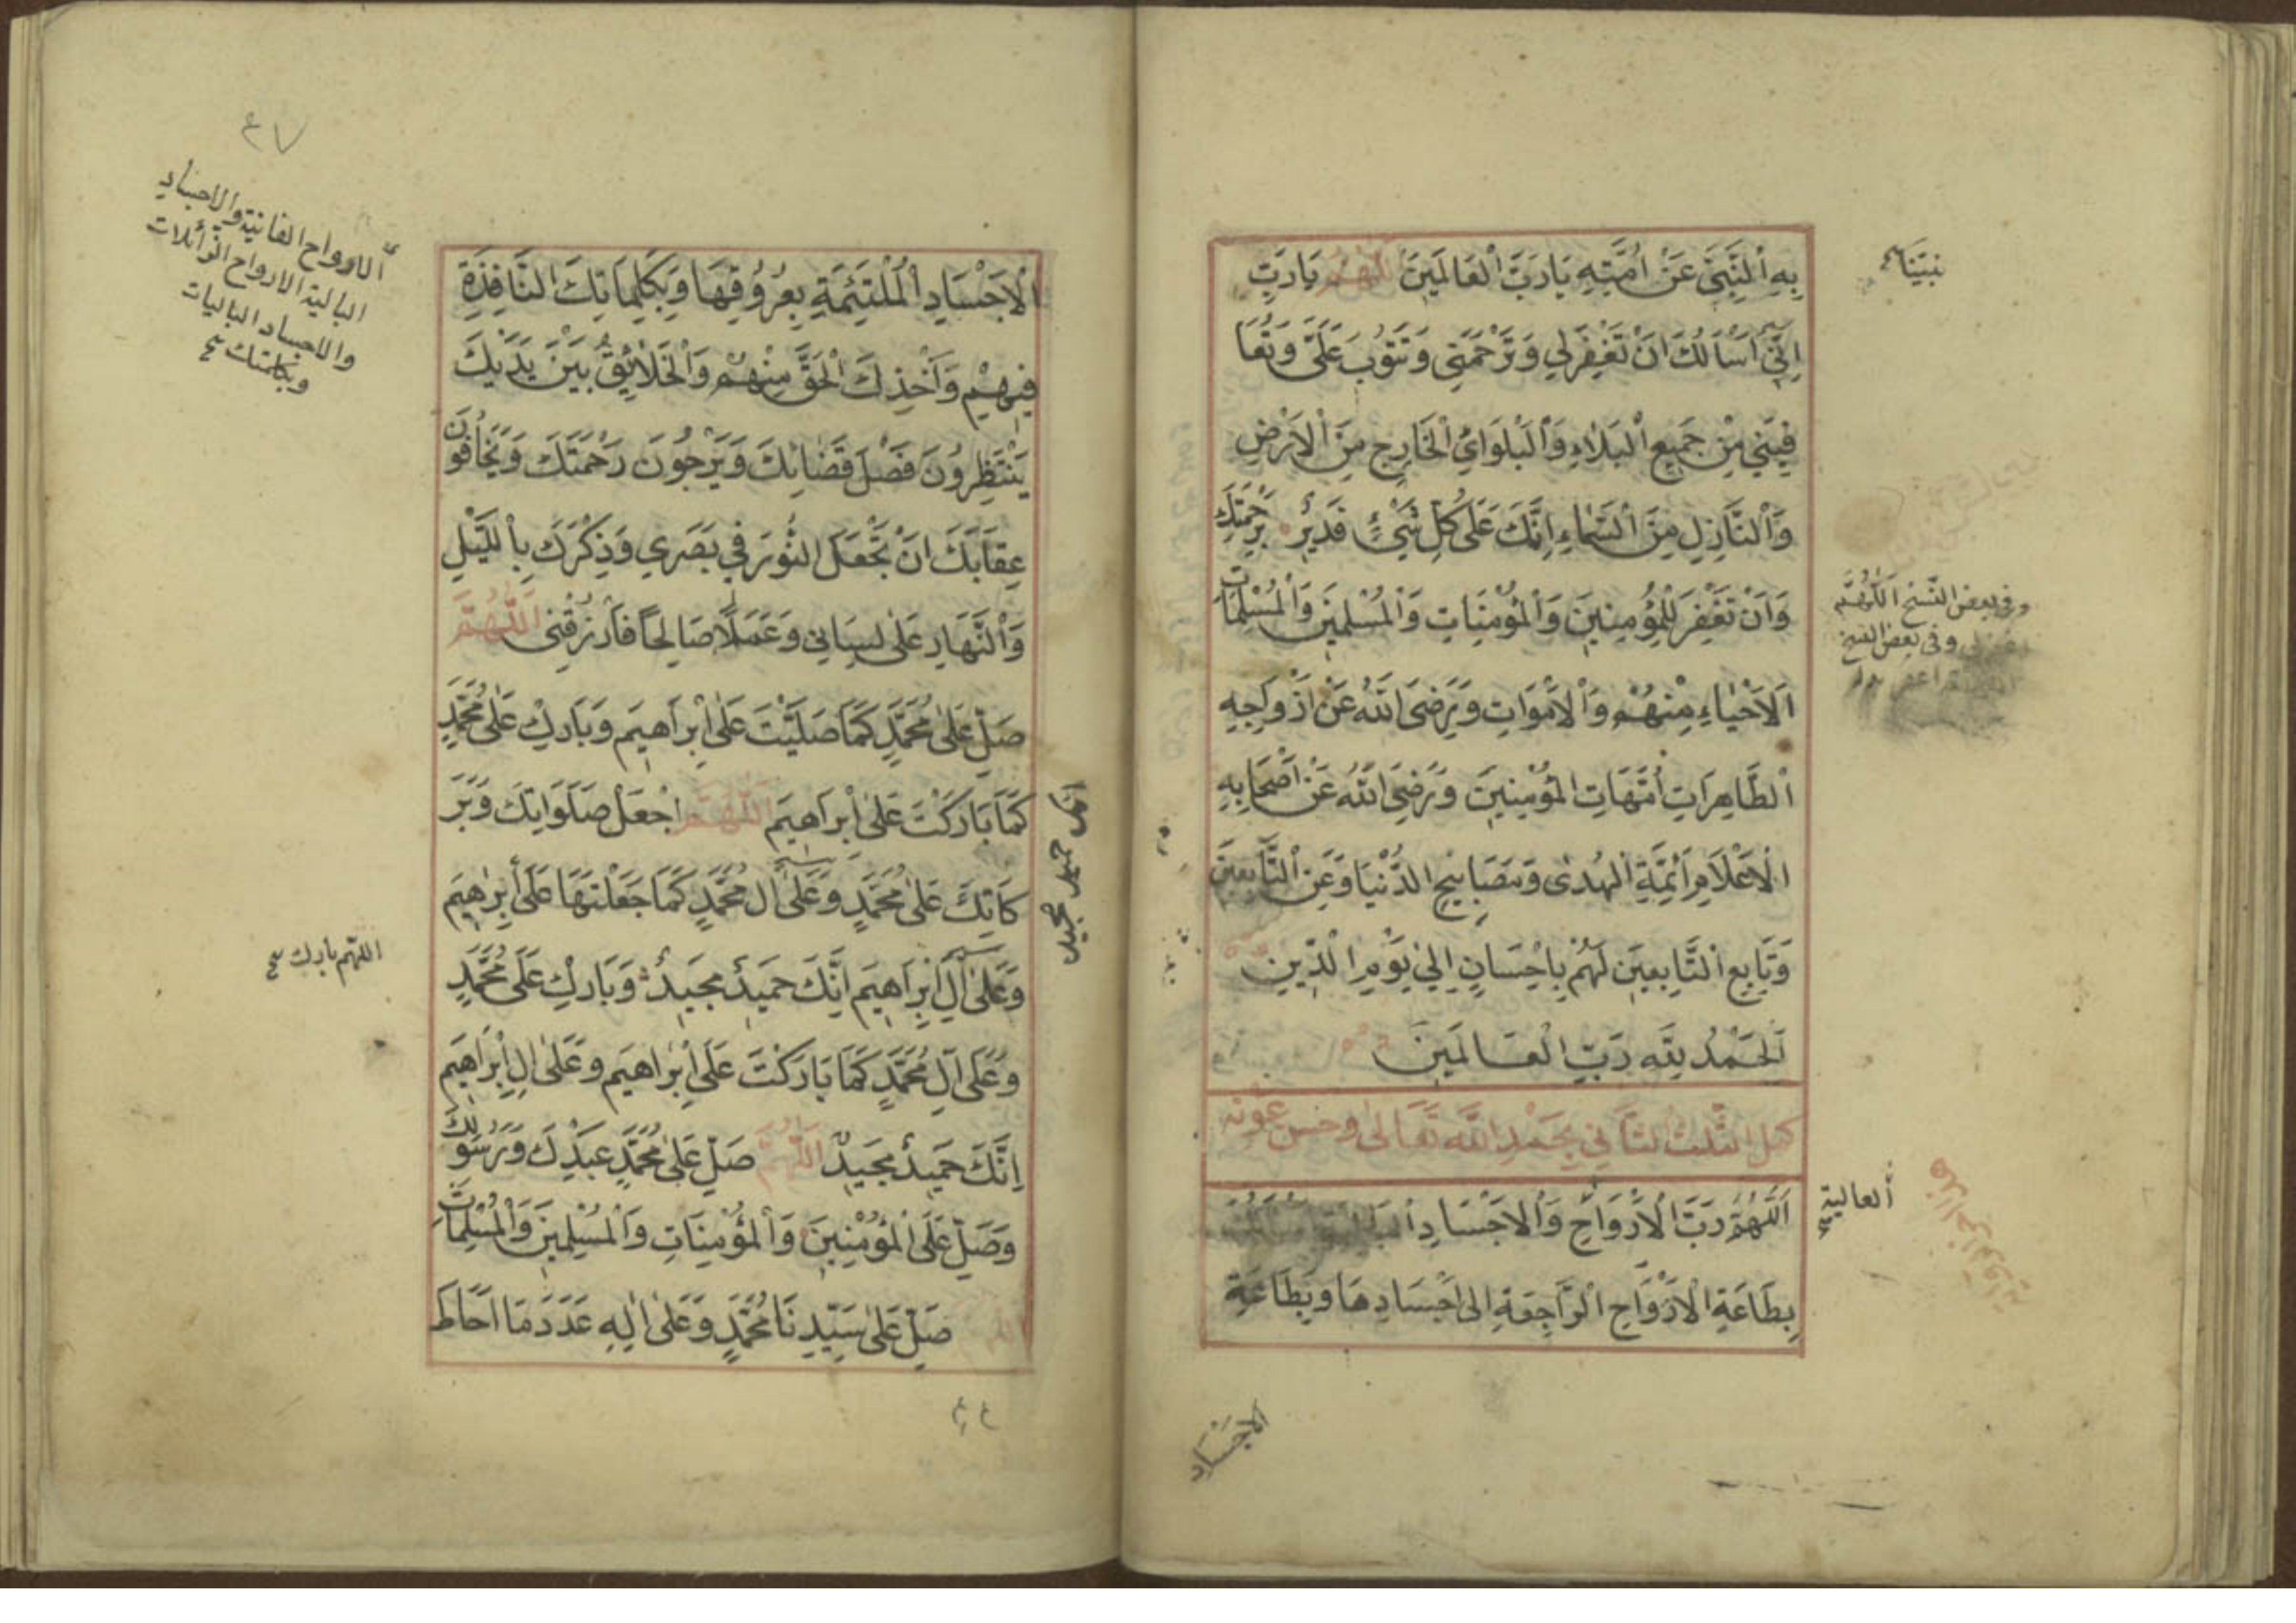 بِهِ اْلنَّبِيَّ عَنْ اُمَّتِهِ يَارَبَّ الْعَالَمِينَ اللّٰهُمَّ يَارَبِّ
اِنِّي اَسْاَلُكَ اَنْ تَغْفِرَلِي وَتَرْحَمَنِي وَتَتُوبَ عَلَيَّ وَتُعَا
فِيَنِي مِنْ جَمِيعِ اْلبَلَاءِ وَاْلبَلْوَائِ الْخَارِجِ مِنَ اْلاَرْضِ
وَاْلنَّازِلِ مِنَ اْلسَّمَاءِ اِنَّكَ عَلٰى كُلِّ شَيْئٍ قَدِيرٌ بِرَحْمَتِكَ
وَاَنْ تَغْفِرَ لِلْمُؤْمِنِينَ وَاْلمُؤْمِنَاتِ وَاْلمُسْلِمِينَ وَاْلمُسْلِمَاتِ
اَلاَحْيَاءِ مِنْهُمْ وَاْلاَمْوَاتِ وَرَضِيَ اللّٰهُ عَنْ اَزْوَاجِهِ
اْلطَّاهِرَاتِ اُمَّهَاتِ الْمُؤْمِنِينَ وَرَضِيَ اللّٰهُ عَنْ اَصْحَابِهِ
اْلاَعْلَامِ اَئِمَّةِ اْلهُدٰى وَمَصَابِيحِ الدُّنْيَا وَعَنِ اْلتَّابِعِينَ
وَتَابِعِ اْلتَّابِعِينَ لَهُمْ بِاِحْسَانٍ اِلٰى يَوْمِ الْدِّينِ
اَلْحَمْدُ لِلّٰهِ رَبِّ الْعَالَمِينَ
كمل الثّلث الثّاني بِحَمْدِ اللّٰه تَعَالٰى وحسن عونه
اَللّٰهُمَّ رَبَّ اْلاَرْوَاحِ وَاْلاَجْسَادِ
بِطَاعَةِ اْلاَرْوَاحِ الْرَّاجِعَةِ اِلٰى اَجْسَادِهَا وَبِطَاعَةِ
الاَجْسَادِ
نبيّنا صح
وفي بعض النّسخ اَللّٰهُمَّ
وفي بعض النسخ
اْلعالية صح
٤٧
الارواح الفانية والاجساد
البالية الارواح الزّائلات
والاجساد الباليات
وبكلمتك صح
اْلاَجْسَادِ اْلمُلْتَئِمَةِ بِعُرُوقِهَا وَبِكَلِمَاتِكَ النَّافِذَةِ
فِيهِمْ وَاَخْذِكَ الْحَقَّ مِنْهُمْ وَاْلخَلَائِقُ بَيْنَ يَدَيْكَ
يَنْتَظِرُونَ فَصْلَ قَضَائِكَ وَيَرْجُونَ رَحْمَتَكَ وَيَخَافُونَ
عِقَابَكَ اَنْ تَجْعَلَ النُّورَ فِي بَصَرِي وَذِكْرَكَ بِاْللَّيْلِ
وَاْلنَّهَارِ عَلٰى لِسَانِي وَعَمَلًا صَالِحًا فَارْزُقْنِي اَللّٰهُمَّ
صَلِّ عَلٰى مُحَمَّدٍ كَمَا صَلَّيْتَ عَلٰى اِبْرَاهِيمَ وَبَارِكْ عَلٰى مُحَمَّدٍ
كَمَا بَارَكْتَ عَلٰى اِبْرَاهِيمَ اَللّٰهُمَّ اجْعَلْ صَلَوَاتِكَ وَبَرَ
كَاتِكَ عَلٰى مُحَمَّدٍ وَعَلٰى اٰلِ مُحَمَّدٍ كَمَا جَعَلْتَهَا عَلٰى اِبْرٰهِيمَ
وَعَلٰى اٰلِ اِبْرَاهِيمَ اِنَّكَ حَمِيدٌ مَجِيدٌ وَبَارِكْ عَلٰى مُحَمَّدٍ
وَعَلٰى اٰلِ مُحَمَّدٍ كَمَا بَارَكْتَ عَلٰى اِبْرٰاهِيمَ وَعَلٰى اٰلِ اِبْرٰاهِيمَ
اِنَّكَ حَمِيدٌ مَجِيدٌ اَللّٰهُمَّ صَلِّ عَلٰى مُحَمَّدٍ عَبْدِكَ وَرَسُولِكَ
وَصَلِّ عَلَى اْلمُؤْمِنِينَ وَاْلمُؤْمِنَاتِ وَاْلمُسْلِمِينَ وَاْلمُسْلِمَاتِ
صَلِّ عَلٰى سَيِّدِنَا مُحَمَّدٍ وَعَلٰى اٰلِهِ عَدَدَ مَا اَحَاطَ
انك حميد مجيد
اللّهم بارك صح